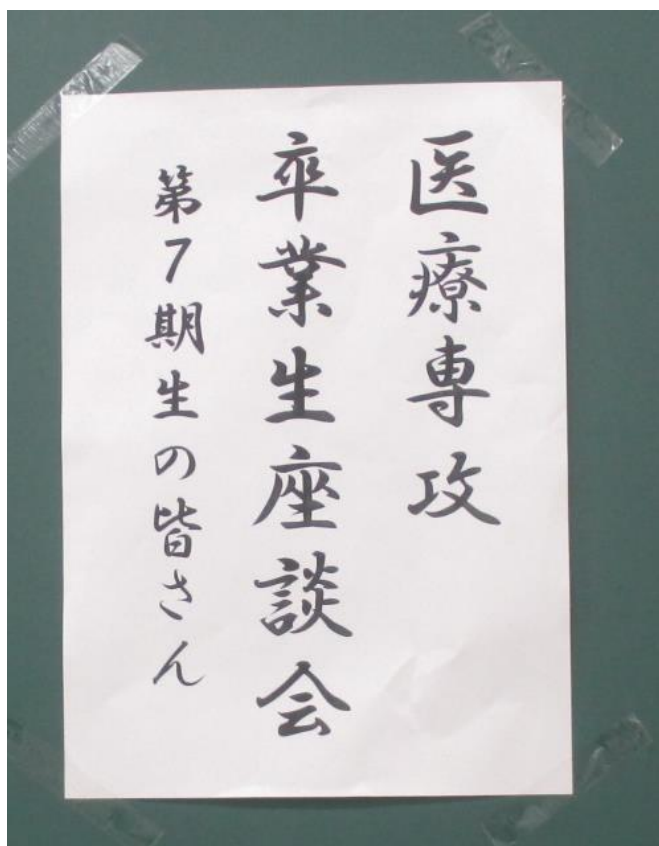 医療専攻
卒業生座談会
第7期生の皆さん